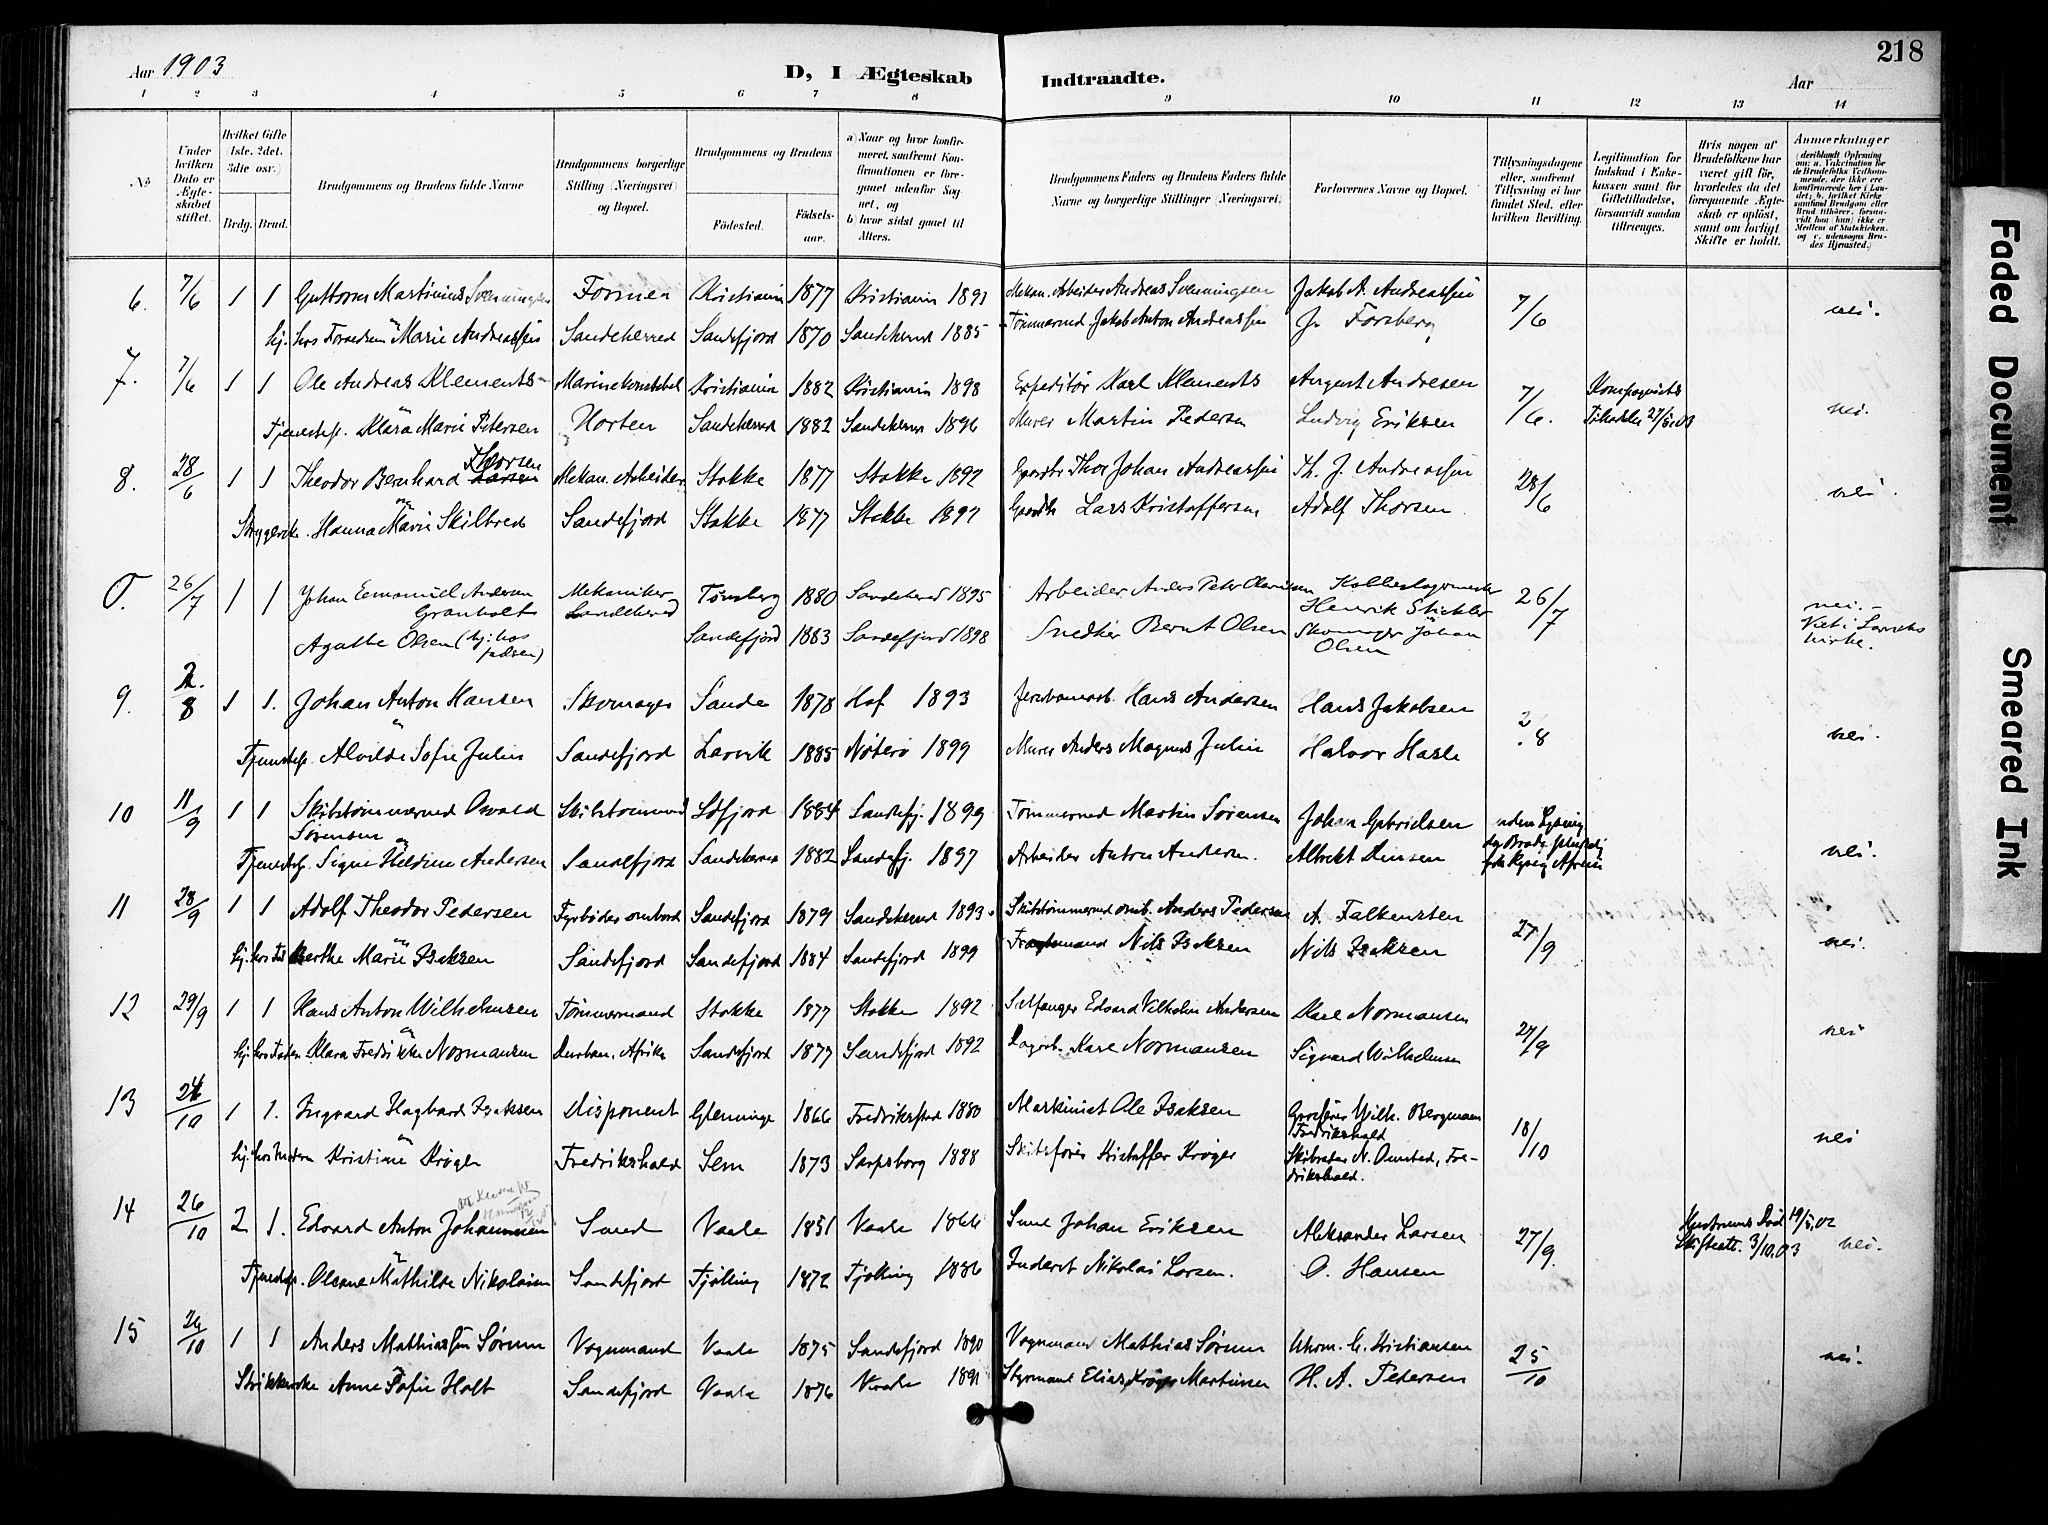 Aar 1903
D, I Ægteskab Indtraadte.
Aar
218
1 2 3 4 5 6 7 8 9 10 11 12 13 14
No
Under hvilken Dato er Ægteskabet stiftet.
Hvilket Gifte (1ste. 2det. 3die osv.)
Brdg. Brud.
Brudgommens og Brudens fulde Navne
Brudgommens borgerlige Stilling (Næringsvei) og Bopæl.
Brudgommens og Brudens
Fødested. Fødselsaar.
a) Naar og hvor konfirmeret, saafremt Konfirmationen er foregaaet udenfor Sognet, og
b) hvor sidst gaaet til Alters.
Brudgommens Faders og Brudens Faders fulde Navne og borgerlige Stillinger (Næringsvei)
Forlovernes Navne og Bopæl.
Tillysningsdagene eller, saafremt Tillysning ei har fundet Sted, efter hvilken Bevilling.
Legitimation for Indskud i Enkekassen samt for Giftetilladelse, forsaavidt saadan tiltrænges.
Hvis nogen af Brudefolkene har været gift før, hvorledes da det foregaaende Ægteskab er opløst, samt om lovligt Skifte er holdt.
Anmærkninger
6. 7/6 1 1 Guttorm Martinius Svenningsen Former Kristiania 1877 Kristiania 1891 Mekan. Arbeider Andreas Svenningsen Jakob A. Andreassen 7/6 nei.
hj. hos Forældrene Marie Andreassen Sandeherred Sandefjord 1870 Sandeherred 1885 Tømmermd Jakob Anton Andreassen J. Forsberg
7. 7/6 1 1 Ole Andreas Klements Marinekonstabel Kristiania 1882 Kristiania 1898 Expeditør Karl Klements August Andresen 7/6. Kompagniets nei.
Tjenestep. Klara Marie Petersen Horten Sandeherred 1882 Sandeherred 1896 Murer Martin Pedersen Ludvig Eriksen Tilladelse 27/5.03
8. 28/6 1 1 Theodor Bernhard Thorsen Mekan. Arbeider Stokke 1877 Stokke 1892 Gaardbr Thor Johan Andreassen Th. J. Andreassen 28/6 nei.
Strygerske. Hanna Marie Skilbred Sandefjord Stokke 1877 Stokke 1892 Gaardb Lars Kristoffersen Adolf Thorsen
0. 26/7 1 1 Johan Emanuel Andersen Mekaniker Tønsberg 1880 Sandeherred 1895 Arbeider Anders Peter 26/7 nei.
Granholt Sandeherred Henrik Stickler
Agathe Olsen (hj: hos Sandefjord 1883 Sandefjord 1898 Snedker Bernt Olsen Skomager Johan Viet i Larviks
Olsen kirke.
9. 2/8 1 1. Johan Anton Hansen Skomager Sande 1878 Hof 1893 Jernbanearb. Hans Andersen Hans Jakobsen 2/8 nei.
Tjenestep. Alvilde Sofie Julin Sandefjord Larvik 1885 Nøterø 1899 Murer Anders Magnus Julin Halvor Hasle
10 11/9 1 1 Skibstømmermd Osvald Skibstømmermd Sdfjord 1884 Sandefj. 1899 Tømmermd Martin Sørensen Johan Gabrielsen uden Lysning
Sørensen
Tjenestep. Signe Heldine Andersen Sandefjord Sandeherred 1882 Sandefj. 1897 Arbeider Anton Andersen. Albrekt Jensen nei.
11 28/9 1 1 Adolf Theodor Pedersen Fyrbøder ombord Sandefjord 1879 Sandeherred 1893. Skibstømmermd omb. Anders Pedersen A. Falkensten 27/9 nei.
hj. hos Berthe Marie Isaksen Sandefjord Sandefjord 1884 Sandefjord 1899 Fragtemand Nils Isaksen Nils Isaksen
12 29/9 1 1 Hans Anton Wilhelmsen Tømmermand Stokke 1877 Stokke 1892 Selfanger Edvard Vilhelm Andersen Karl Normansen 27/9 nei
hj. hos Faderen Klara Fredrikke Normansen Durban. Afrika Sandefjord 1877 Sandefjord 1892 Dagarb. Karl Normansen Sigvard Wilhelmsen
13 24/10 1 1. Ingvard Hagbard Isaksen Disponent Glemminge 1866 Fredrikstad 1880 Maskinist Ole Isaksen Grosserer Wilh. Bergmann 18/10 nei
Fredrikshald
hj. hos Moderen Kristine Krøger Fredrikshald Sem 1873 Sarpsborg 1888 Skibsfører Kristoffer Krøger Skibsreder N. Ousted, Fredrikshald.
14 26/10 2 1. Edvard Anton Johannesen Smed Vaale 1851 Vaale 1866 Smed Johan Eriksen Aleksander Larsen 27/9. Hustruens Død 19/5.02 nei.
Tjenestep. Olevne Mathilde Nikolaisen Sandefjord Tjølling 1872 Tjølling 1886 Inderst Nikolai Larsen. O. Hansen Skifteatt. 3/10.03
15 24/10 1 1 Anders Mathiassen Sørum Vognmand Vaale 1875 Sandefjord 1890 Vognmand Mathias Sørum Uhrm. C. Kristiansen 25/10 nei.
Strikkerske Anne Sofie Holt Sandefjord Vaale 1876 Vaale 1891 Styrmand Elias Krøger Martinsen H. A. Petersen
Faded Document
Smeared Ink